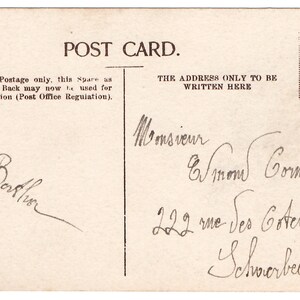 POST CARD.
Postage only, this Space as
Back may now be used for
tion (Post Office Regulation).
THE ADDRESS ONLY TO BE
WRITTEN HERE
Berthe
Monsieur
Edmond Corn
222 rue des Coteau
Schaerbe